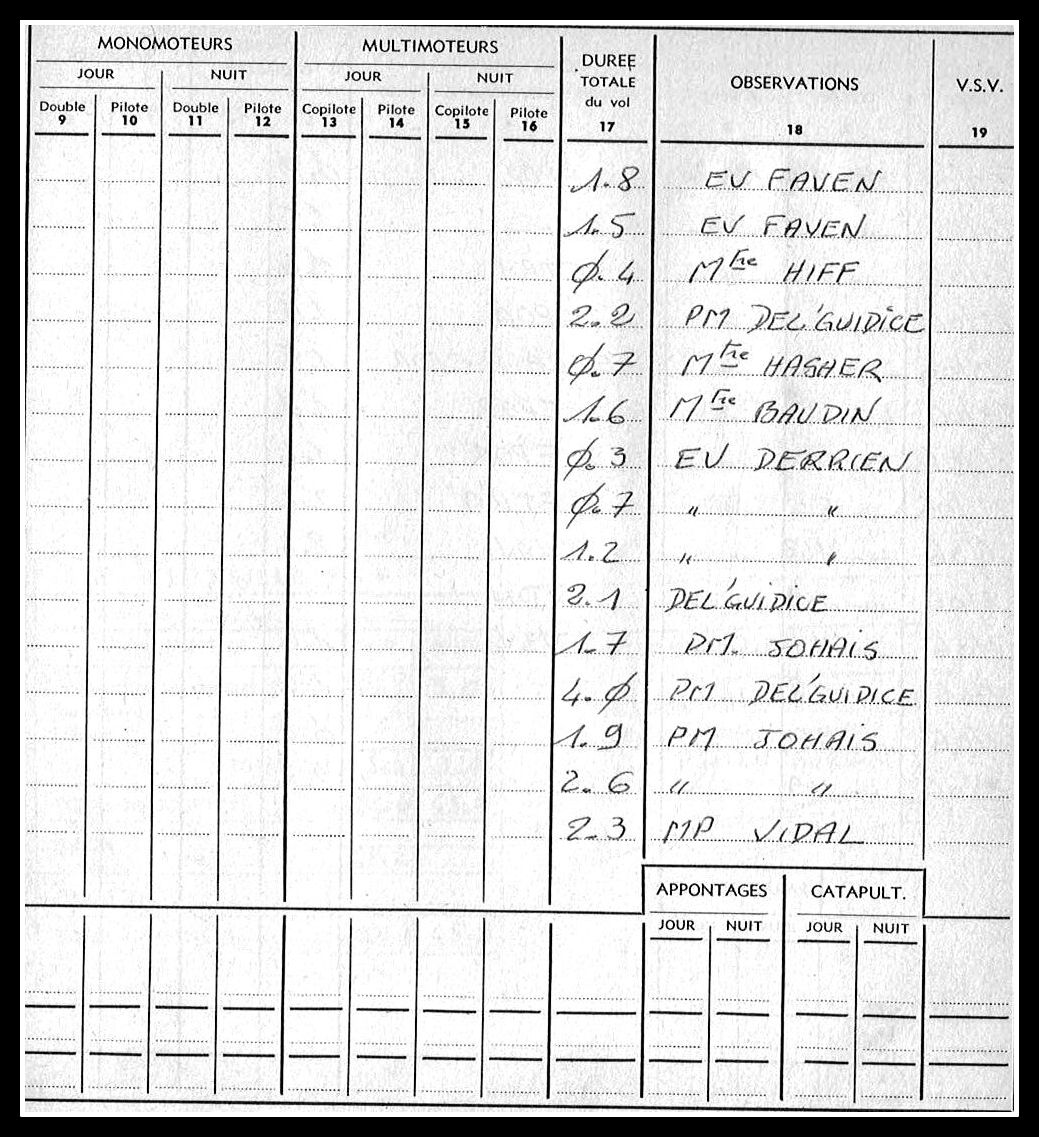 MONOMOTEURS MULTIMOTEURS DUREE TOTALE du vol OBSERVATIONS V.S.V.
JOUR NUIT JOUR NUIT
Double Pilote Double Pilote Copilote Pilote Copilote Pilote
9 10 11 12 13 14 15 16 17 18 19
1.8 EV FAVEN
1.5 EV FAVEN
Ø.4 Mtre HIFF
2.2 PM DEL'GUIDICE
Ø.7 Mtre HASHER
1.6 Mtre BAUDIN
Ø.3 EV DERRIEN
Ø.7 " "
1.2 " "
2.1 DEL'GUIDICE
1.7 PM. JOHAIS
4.Ø PM DEL'GUIDICE
1.9 PM JOHAIS
2.6 " "
2.3 MP VIDAL
APPONTAGES CATAPULT.
JOUR NUIT JOUR NUIT